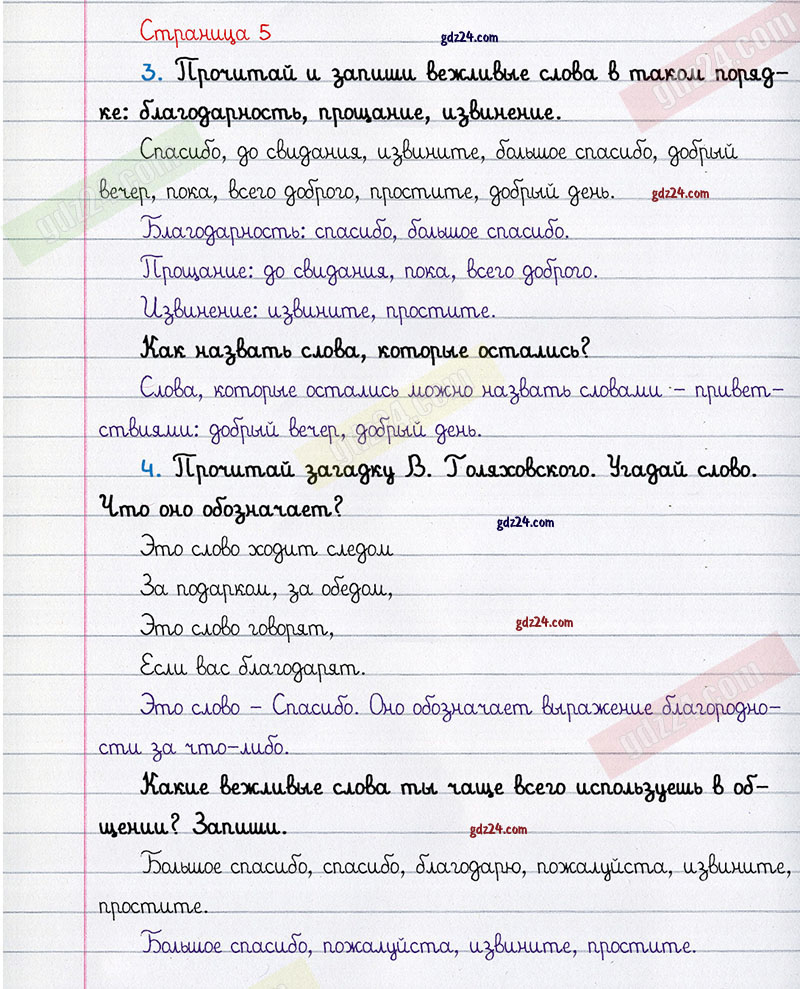 Страница 5 gdz24.com
3. Прочитай и запиши вежливые слова в таком поряд-
ке: благодарность, прощание, извинение.
Спасибо, до свидания, извините, большое спасибо, добрый
вечер, пока, всего доброго, простите, добрый день. gdz24.com
Благодарность: спасибо, большое спасибо.
Прощание: до свидания, пока, всего доброго.
Извинение: извините, простите.
Как назвать слова, которые остались?
Слова, которые остались можно назвать словами - привет-
ствиями: добрый вечер, добрый день.
4. Прочитай загадку В. Голяховского. Угадай слово.
Что оно обозначает? gdz24.com
Это слово ходит следом
За подарком, за обедом,
Это слово говорят, gdz24.com
Если вас благодарят.
Это слово - Спасибо. Оно обозначает выражение благородно-
сти за что-либо.
Какие вежливые слова ты чаще всего используешь в об-
щении? Запиши. gdz24.com
Большое спасибо, спасибо, благодарю, пожалуйста, извините,
простите.
Большое спасибо, пожалуйста, извините, простите.